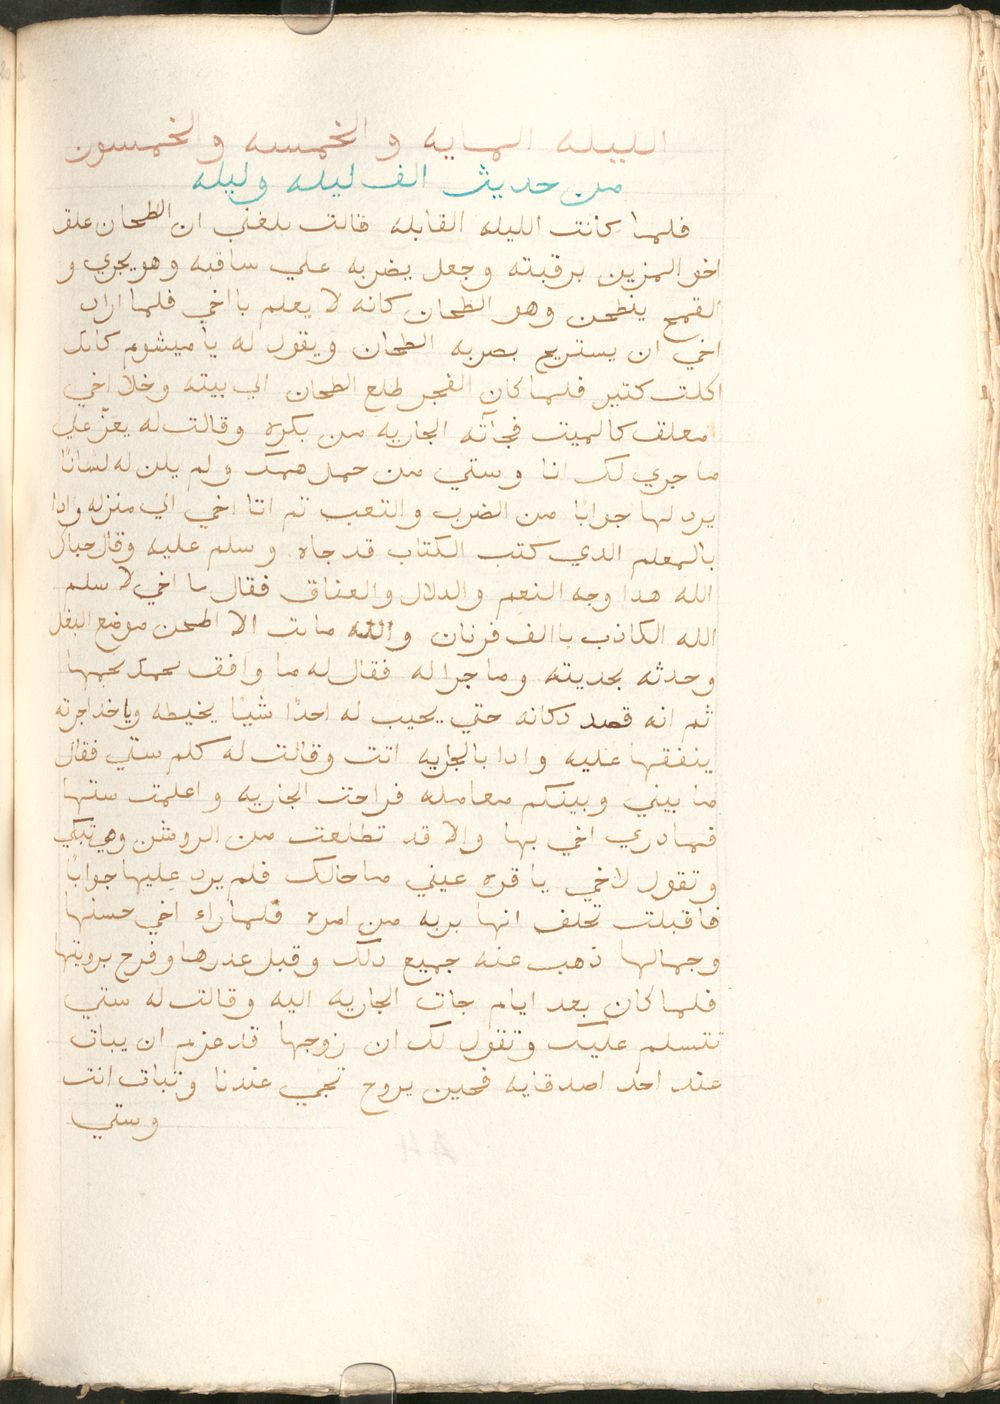 الليله المايه و الخمسه والخمسون
من حديث الف ليله وليله
فلما كانت الليله القابله قالت بلغني ان الطحان علق
اخو المزين برقبته وجعل يضربه علي ساقيه وهو يجري و
القمح ينطحن وهو الطحان كانه لا يعلم باخي فلما اراد
اخي ان يستريح يضربه الطحان ويقول له يا ميشوم كانك
اكلت كتير فلما كان الفجر طلع الطحان الي بيته وخلا اخي
معلق كالميت فجآته الجاريه من بكره وقالت له يعزّ علي
ما جري لك انا وستي من حمل همك ولم يكن له لسانًا
يرد لها جوابًا من الضرب والتعب تم اتا اخي الي منزله وادا
بالمعلم الدي كتب الكتاب قد جاه وسلم عليه وقال حياك
الله هدا وجه النعيم والدلال والعناق فقال اخي لا سلم
الله الكاذب يا الف قرنان والله ما بت الا اطحن موضع البغل
وحدثه بحديته وما جرا له فقال له ما وافق نجمك نجمها
ثم انه قصد دكانه حتي يجيب له احدًا شيًا يخيطه وياخد اجرته
ينفقها عليه وادا بالجاريه اتت وقالت له كلم ستي فقال
ما بيني وبينكم معامله فراحت الجاريه واعلمت ستها
فما دري اخي بها والا قد تطلعت من الروشن وهي تبكي
وتقول لاخي يا قره عيني ما حالك فلم يرد عليها جوابًا
فاقبلت تحلف انها بريه من امره فلما راء اخي حسنها
وجمالها ذهب عنه جميع دلك وقبل عدرها وفرح برويتها
فلما كان بعد ايام جات الجاريه اليه وقالت له ستي
تتسلم عليك وتقول لك ان زوجها قد عزم ان يبات
عند احد اصدقايه فحين يروح تجي عندنا وتبات انت
وستي